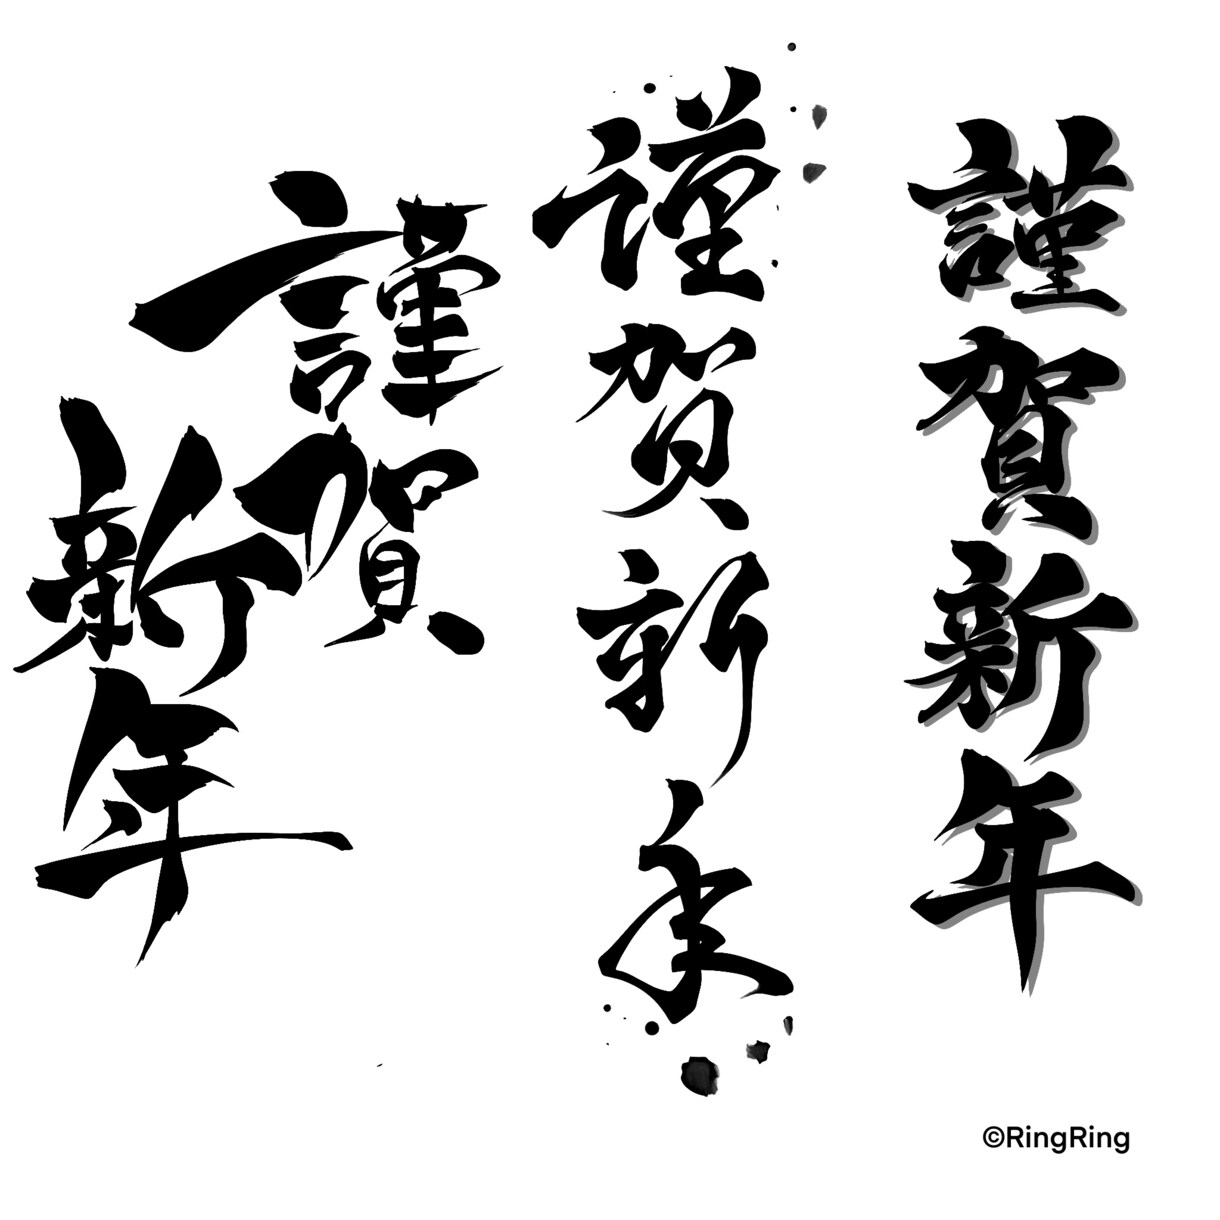 謹賀新年
謹賀新年
謹賀
新年
©RingRing